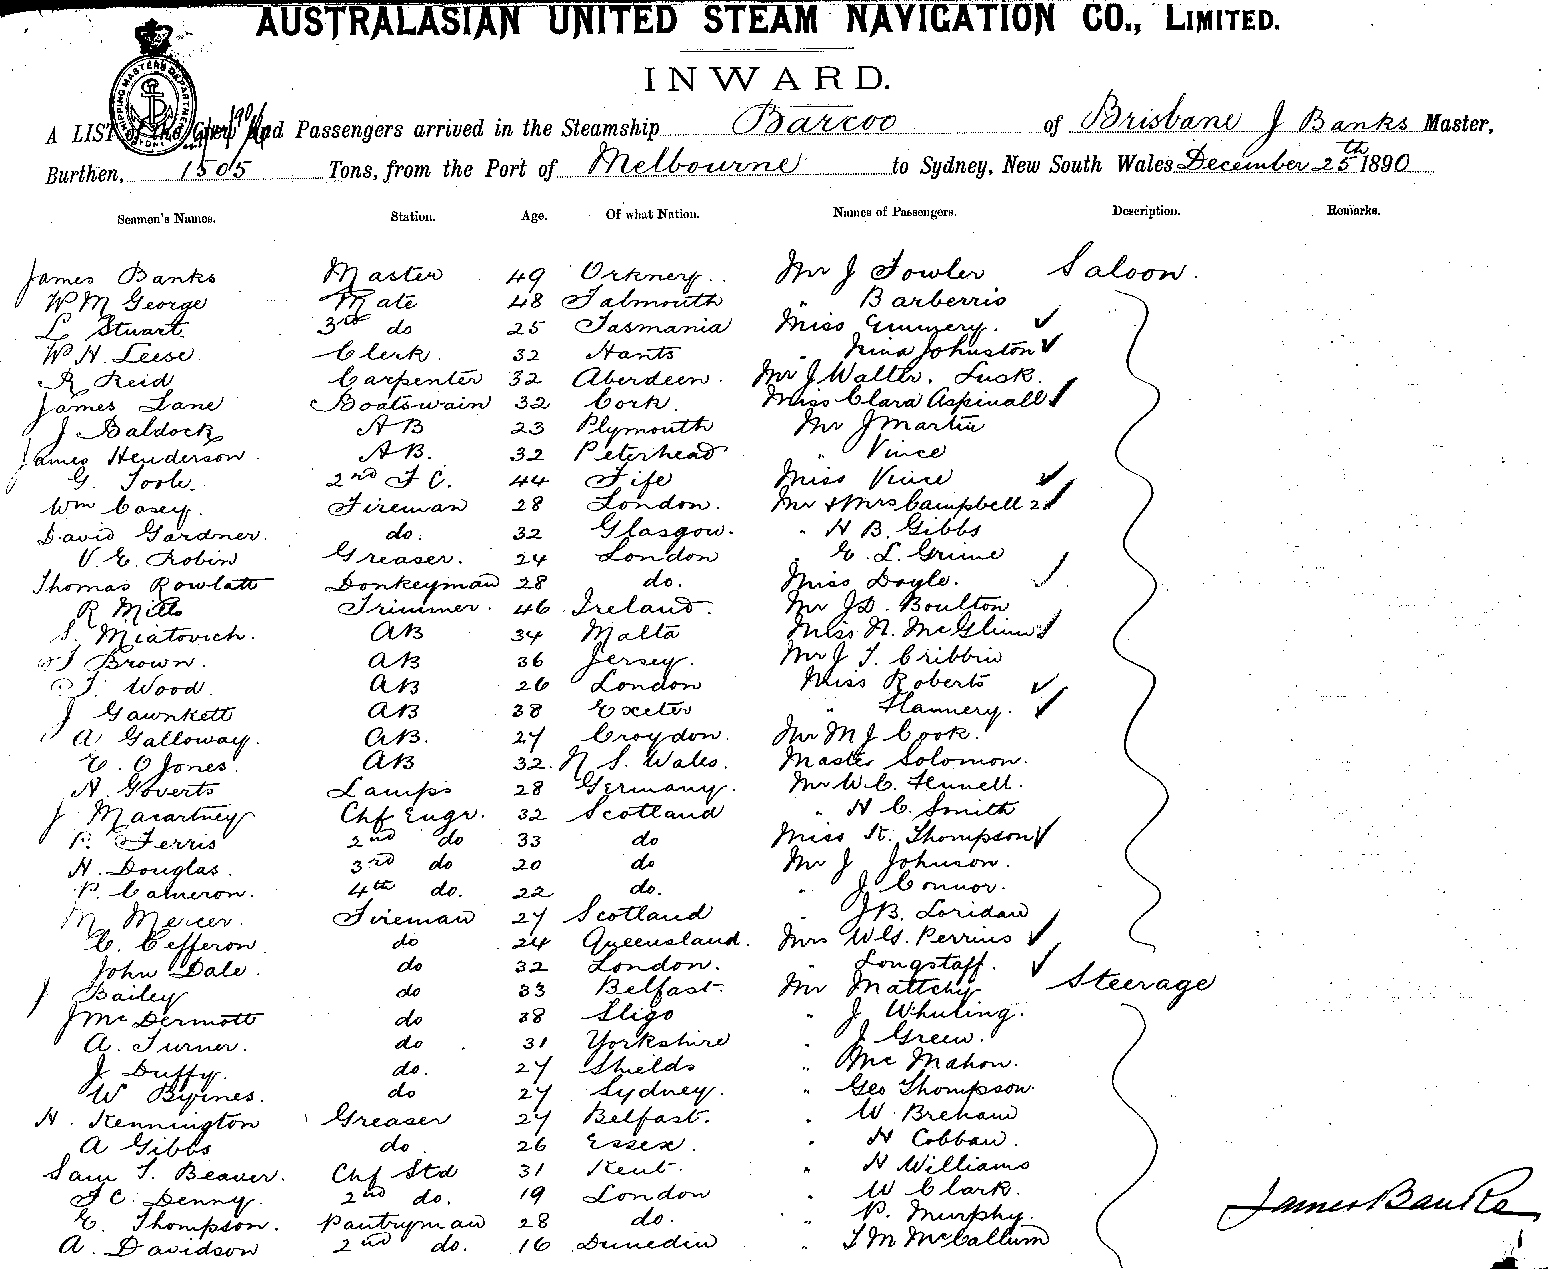 AUSTRALASIAN UNITED STEAM NAVIGATION CO., LIMITED.
INWARD.
A LIST of the Crew and Passengers arrived in the Steamship Barcoo of Brisbane J Banks Master,
Burthen, 1505 Tons, from the Port of Melbourne to Sydney, New South Wales December 25th 1890
Seamen's Names. Station. Age. Of what Nation. Names of Passengers. Description. Remarks.
James Banks Master 49 Orkney. Mr J Fowler Saloon.
Wm George Mate 48 Falmouth " Barberris
L Stuart 3rd do 25 Tasmania Miss Emmery.
W H Leese Clerk. 32 Hants " Nina Johnston
R Reid Carpenter 32 Aberdeen. Mr J Walter. Lusk.
James Lane Boatswain 32 Cork. Miss Clara Aspinall
J Baldock AB 23 Plymouth Mr J Martin
James Henderson. AB. 32 Peterhead " Vince
G. Toole. 2nd F C. 44 Fife Miss Vince
Wm Casey. Fireman 28 London. Mr & Mrs Campbell 2
David Gardner. do. 32 Glasgow. " H B. Gibbs
V. E. Robin Greaser. 24 London " E. L. Grime
Thomas Rowlatt Donkeyman 28 do. Miss Doyle.
R Mills Trimmer. 46 Ireland. Mr J D. Boulton
S. Miatovich. AB 34 Malta Miss N. McGlinn
J Brown. AB 36 Jersey. Mr J T. Cribbin
T. Wood. AB 26 London Miss Roberts
J Gawnkett AB 38 Exeter " Flannery.
A Galloway. AB. 27 Croydon. Mr M J Cook.
E. O Jones. AB 32. N S. Wales. Master Solomon.
H. Goverts Lamps 28 Germany. Mr W C. Fennell.
J Macartney Chf Engr. 32 Scotland " H C. Smith
P. Ferris 2nd do 33 do Miss K. Thompson
H. Douglas. 3rd do 20 do Mr J Johnson.
P. Cameron. 4th do. 22 do. " J Connor.
M Mercer. Fireman 27 Scotland " J B. Loridan
C. Cefferon do 24 Queensland. Mrs W G. Perrins
John Dale. do 32 London. " Longstaff.
J Bailey do 33 Belfast. Mr Mattchy Steerage
J McDermott do 38 Sligo " J Whuting.
A. Turner. do 31 Yorkshire " J Green.
J Duffy. do. 27 Shields " McMahon.
W Byrnes. do 27 Sydney. " Geo Thompson.
H. Kennington Greaser 27 Belfast. " W. Breham
A Gibbs do 26 Essex. " H Cobban.
Sam T. Beaver. Chf Std 31 Kent. " H Williams
F C. Denny. 2nd do. 19 London " W Clark.
E. Thompson. Pantryman 28 do. " P. Murphy.
A. Davidson 2nd do. 16 Dunedin " T M McCallum
James Banks